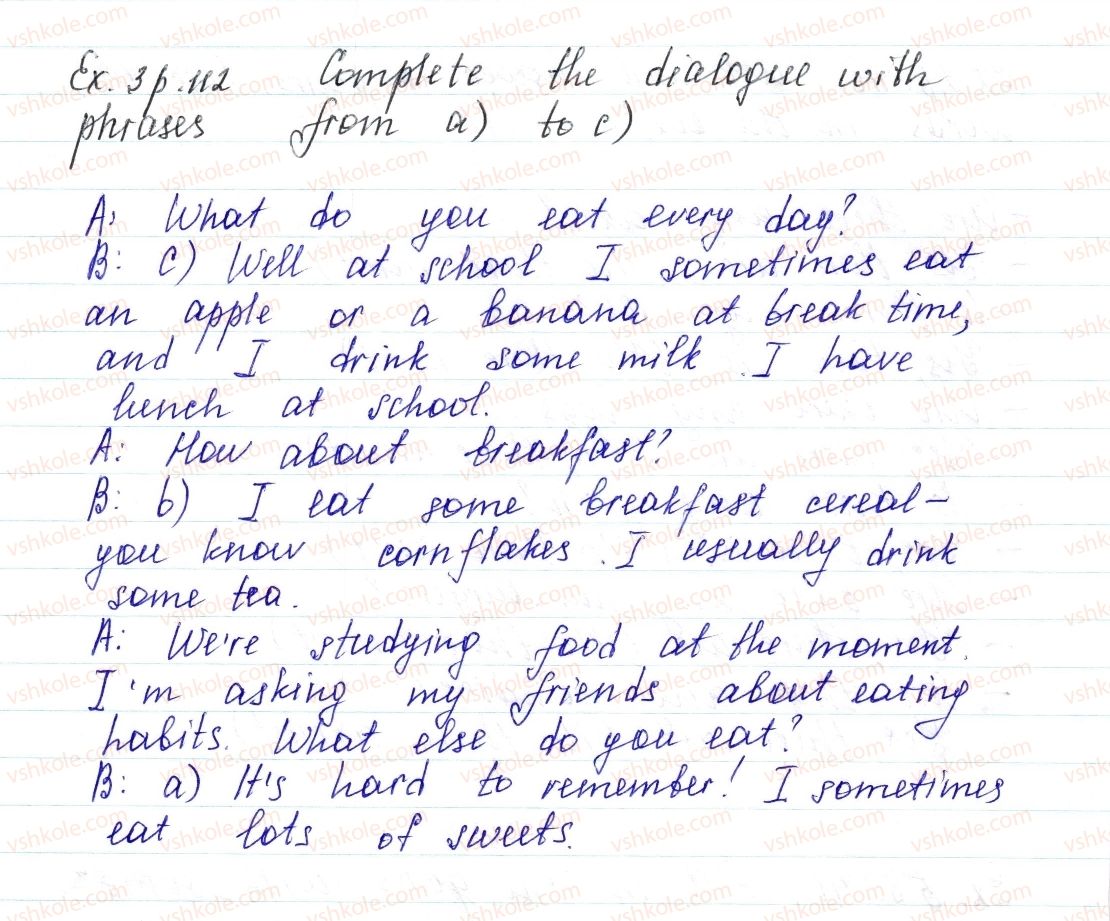 Ex. 3 p. 112 Complete the dialogue with
phrases from a) to c)
A: What do you eat every day?
B: c) Well at school I sometimes eat
an apple or a banana at break time,
and I drink some milk. I have
lunch at school.
A: How about breakfast?
B: b) I eat some breakfast cereal –
you know cornflakes. I usually drink
some tea.
A: We're studying food at the moment.
I'm asking my friends about eating
habits. What else do you eat?
B: a) It's hard to remember! I sometimes
eat lots of sweets.